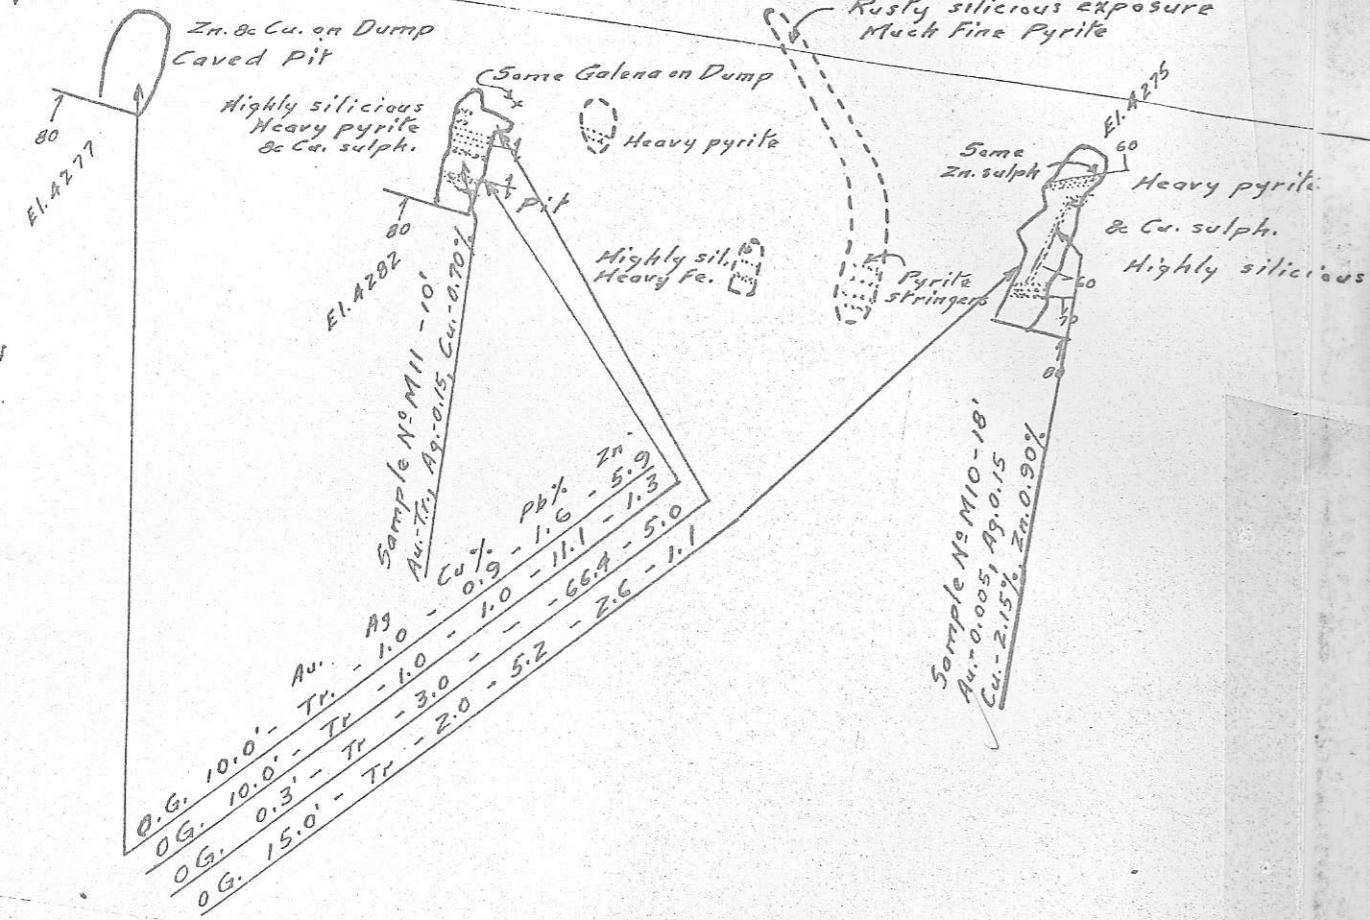 Zn. & Cu. on Dump
Caved Pit
80
El. 4277
Highly silicious
Heavy pyrite
& Cu. sulph.
Some Galena on Dump
Pit
80
El. 4282
Heavy pyrite
Rusty silicious exposure
Much Fine Pyrite
Highly sil.
Heavy Fe.
Pyrite
stringers
El. 4275
60
Some
Zn. sulph
Heavy pyrite
& Cu. sulph.
Highly silicious
60
70
80
Sample Nº M11 - 10'
Au.-Tr., Ag.-0.15, Cu.-0.70%
Sample Nº M10-18'
Au.-0.005, Ag.0.15
Cu.-2.15%, Zn.0.90%
Au. Ag Cu% Pb% Zn
O.G. 10.0' - Tr. - 1.0 - 0.9 - 1.6 - 5.9
OG. 10.0' - Tr - 1.0 - 1.0 - 11.1 - 1.3
OG. 0.3' - Tr - 3.0 - - 66.4 - 5.0
OG. 15.0' - Tr - 2.0 - 5.2 - 2.6 - 1.1